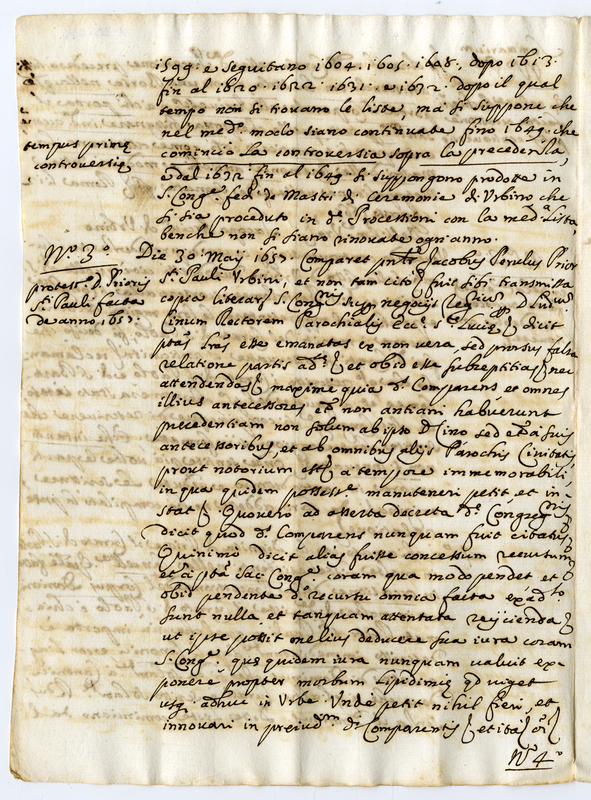 1599. e seguitano 1604. 1605. 1608. dopo 1613.
fin al 1620. 1622. 1631. e 1632. dopo il qual
tempo non si trovano le liste, ma si suppone che
nel med.º modo siano continuate fino 1649. che
tempus primę
controversię
cominciò la controversia sopra la precedenza,
e dal 1632 fin al 1649. si suppongono prodotte in
S. Congᵉ. fedi de Mastri di Ceremonie di Urbino che
si sia proceduto in dᵉ. Processioni con la medᵃ. lista,
benche non si siano rinovate ogn'anno.
Nº. 3º.
Die 30 Maij 1657. Comparet Jacobus Prior
protestº. D. Prioris
Sti. Pauli facta
de anno 1657.
Sti. Pauli Urbini, et non tam cito fuit sibi transmissa
copia literarum S. Congnis supr. negocijs
Rectorem Parochialis Eccᵉ. Sᵉ. Lucię dicit
ptas. lras. esse emanatas ex non vera, sed prorsus falsa
relatione partis adᵉ. et ob id esse subreptitias nec
attendendas maxime quia dˢ. Comparens et omnes
illius antecessores non habuerunt
precedentiam non solum ab ipso sed et a suis
antecessoribus, et ab omnibus alijs Parochis Civitatis
prout notorium est a tempore immemorabili
in qua quidem possessᵉ. manuteneri petit et in-
stat. Quovero ad asserta decreta dᵉ. Congregnis
dicit quod dˢ. Comparens nunquam fuit citatus
Quinimo dicit alias fuisse concessum recursum
et a pta. Sac. Congᵉ. coram qua modo pendet et
obid pendente dº. recursu omnia facta ex adto.
sunt nulla, et tanquam attentata reijcienda
ut ipse possit melius deducere sua iura coram
S. Congᵉ. quę quidem iura nunquam valuit ex-
ponere propter morbum Epidimię qd viget
usq. adhuc in Urbe. Unde petit nihil fieri, et
innovari in preiudm. dᵢ. Comparentis et ita
Nº. 4º.